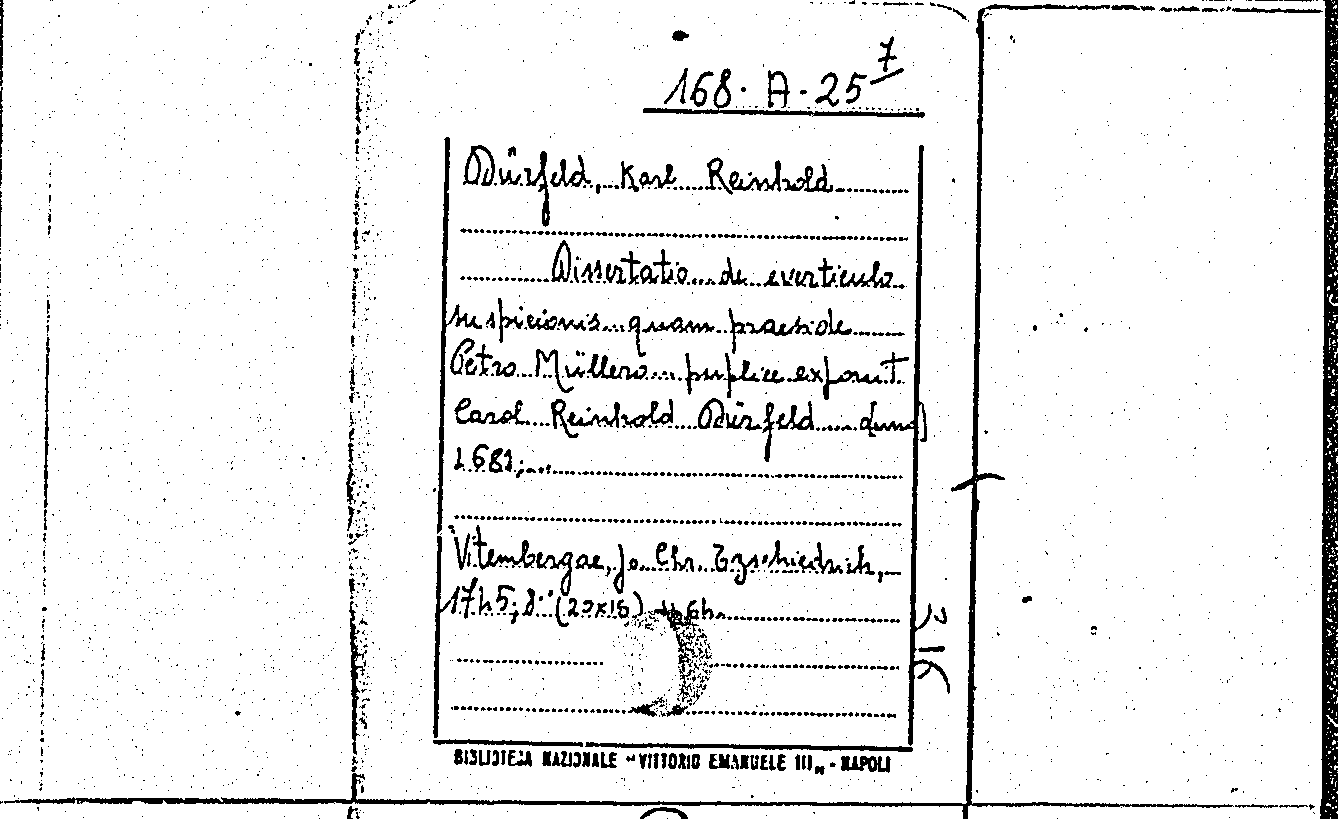 168. A. 25 7
Dürfeld, Karl Reinhold
Dissertatio de everticulo
suspicionis quam praeside
Petro Müllero publice exponit
Carol Reinhold Dürfeld
1681;
Vitembergae, Jo. Chr. Tzschiedrich,
1745; 8° (20x16) p. 64.
316
BIBLIOTECA NAZIONALE "VITTORIO EMANUELE III" - NAPOLI